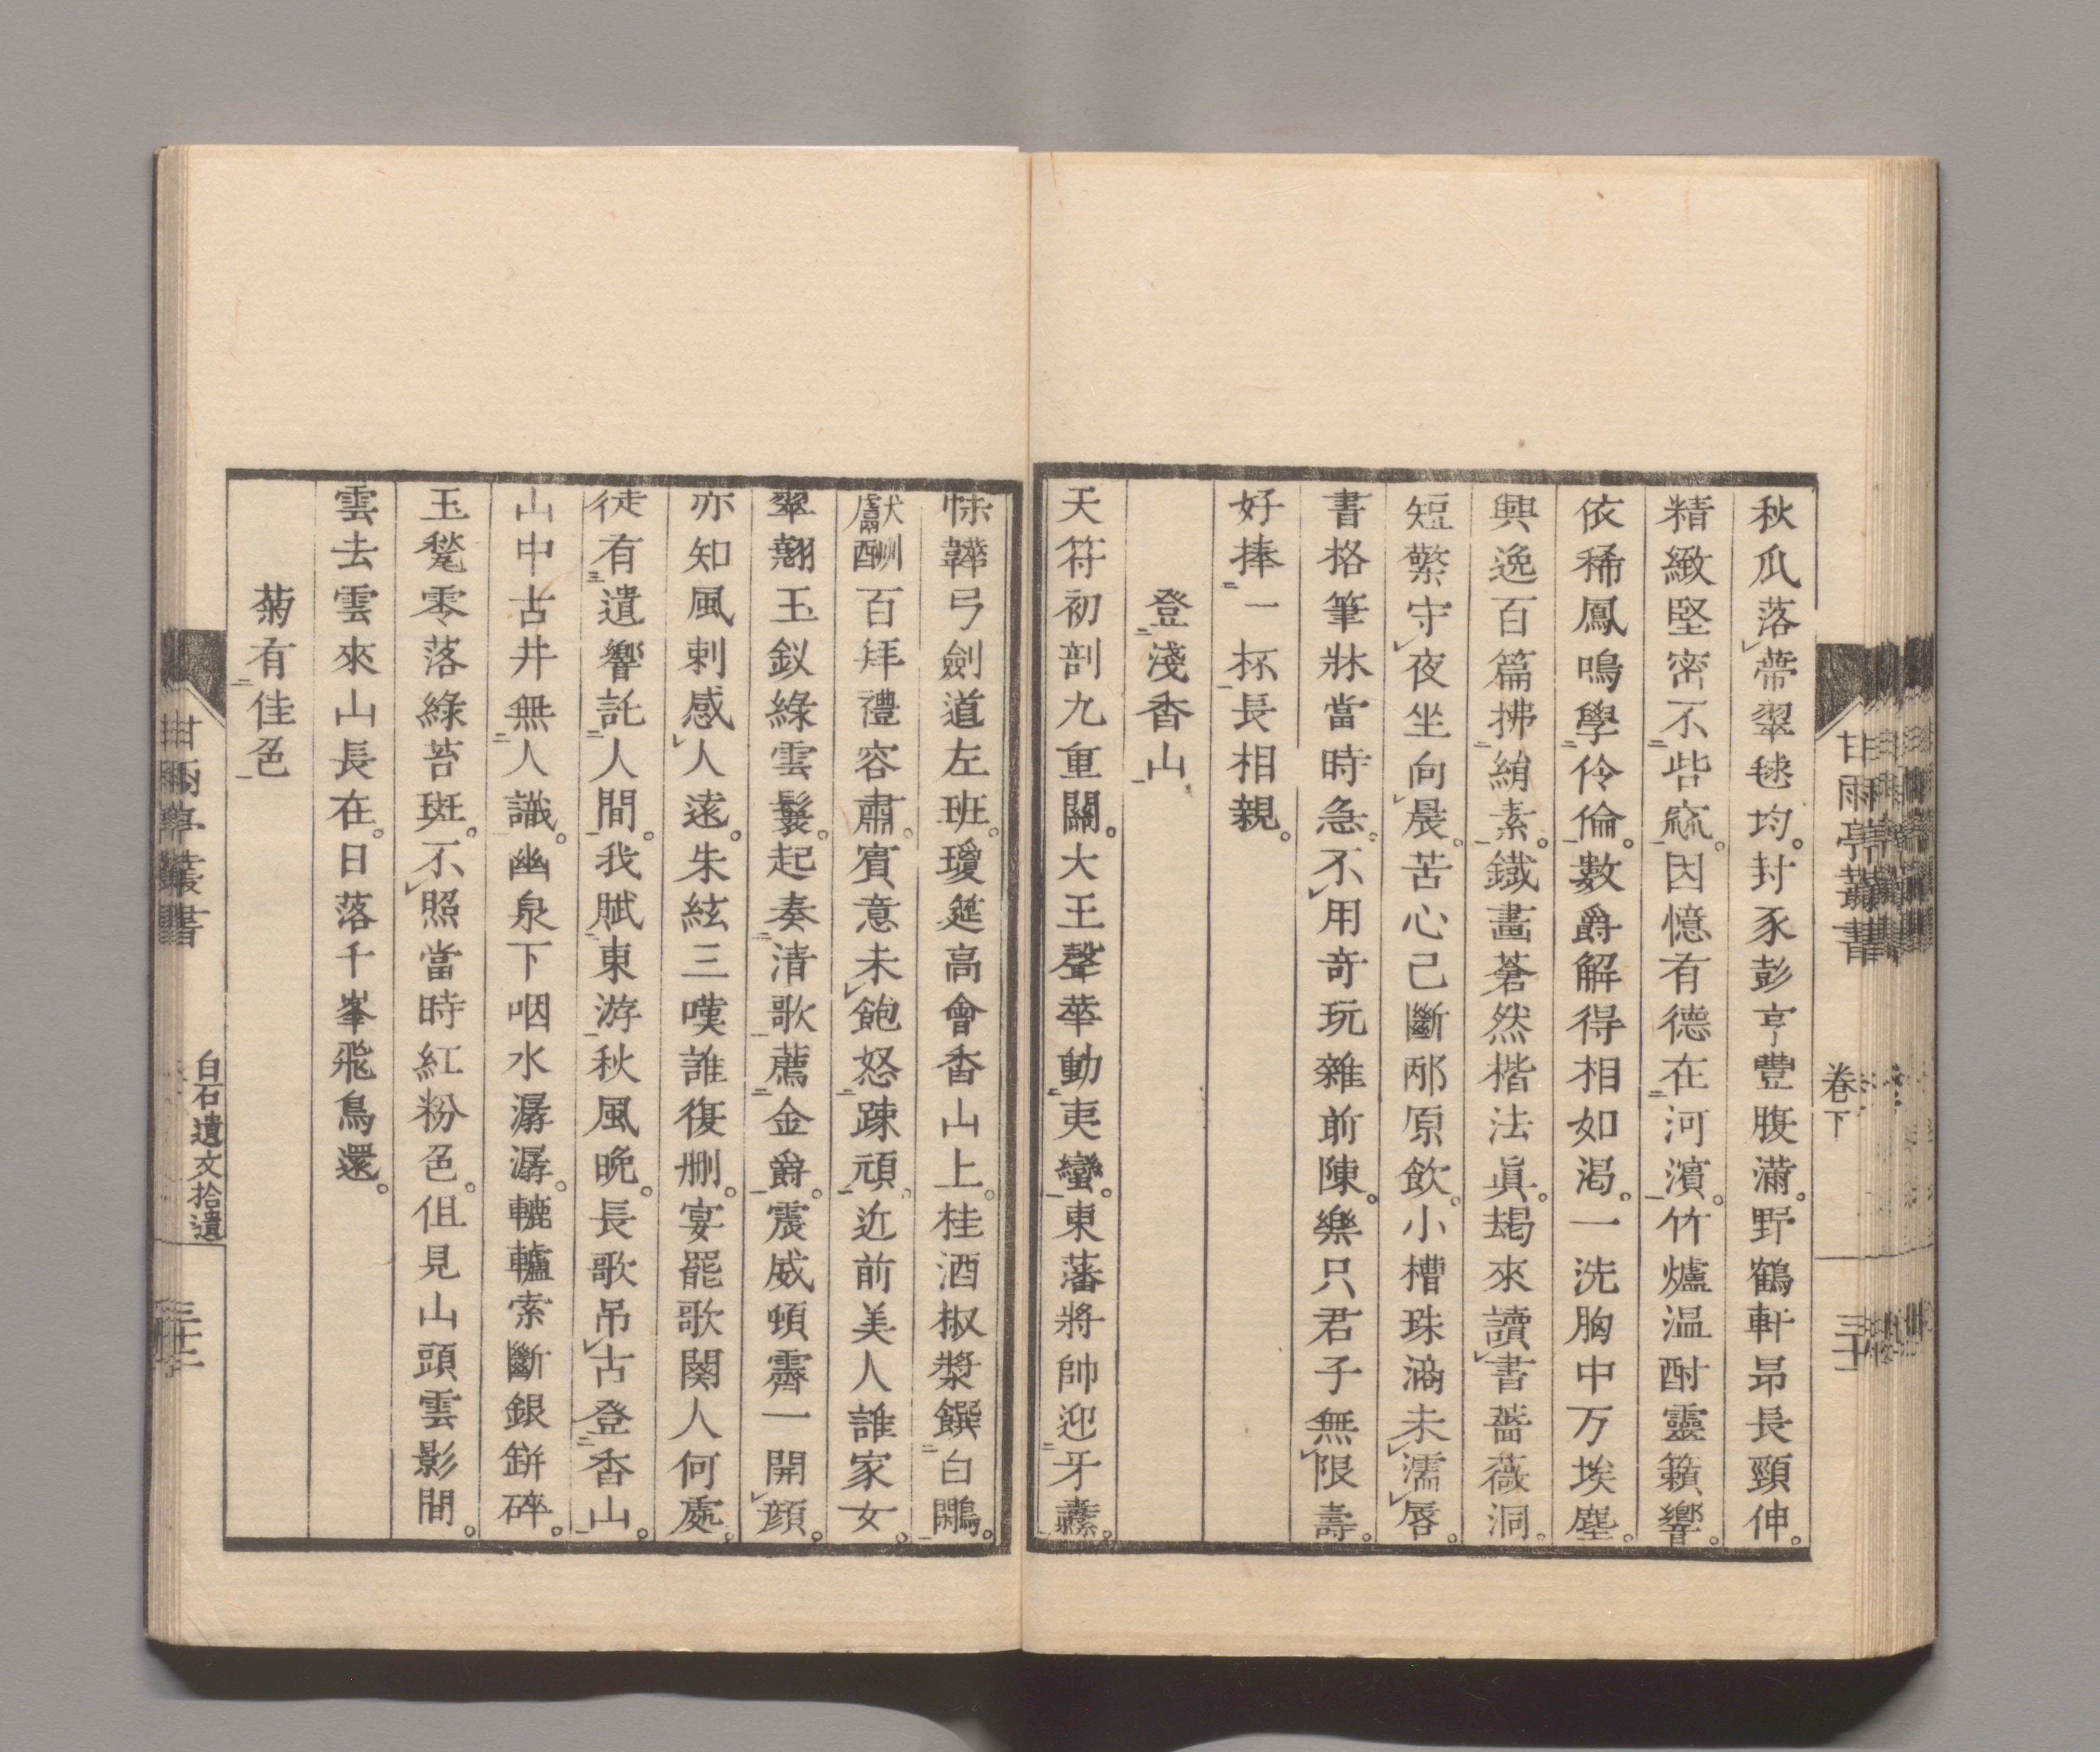 秋瓜落蔕翠毬均。封豕彭亨豐腹滿。野鶴軒昂長頸伸。
精緻堅密不呰窳。因憶有德在河濱。竹爐温酎靈籟響。
依稀鳳鳴學伶倫。數爵解得相如渴。一洗胸中万埃塵。
興逸百篇拂綃素。鐵畫蒼然楷法眞。朅來讀書薔薇洞。
短檠守夜坐向晨。苦心己斷邴原飲。小槽珠滴未濡脣。
書格筆牀當時急。不用奇玩雜前陳。樂只君子無限壽。
好捧一杯長相親。
登淺香山
天符初剖九重關。大王聲華動夷蠻。東藩將帥迎牙纛。
韎韐弓劍道左班。瓊筵高會香山上。桂酒椒漿饌白鷴。
獻酬百拜禮容肅。賓意未飽怒疎頑。近前美人誰家女。
翠翹玉釵綠雲鬟。起奏清歌薦金爵。震威頓霽一開顔。
亦知風刺感人遠。朱絃三嘆誰復刪。宴罷歌闋人何處。
徒有遺響託人間。我賦東游秋風晩。長歌吊古登香山。
山中古井無人識。幽泉下咽水潺潺。轆轤索斷銀缾碎。
玉甃零落綠苔斑。不照當時紅粉色。但見山頭雲影間。
雲去雲來山長在。日落千峯飛鳥還。
菊有佳色
甘雨亭叢書
卷下
三十一
甘雨亭叢書
白石遺文拾遺